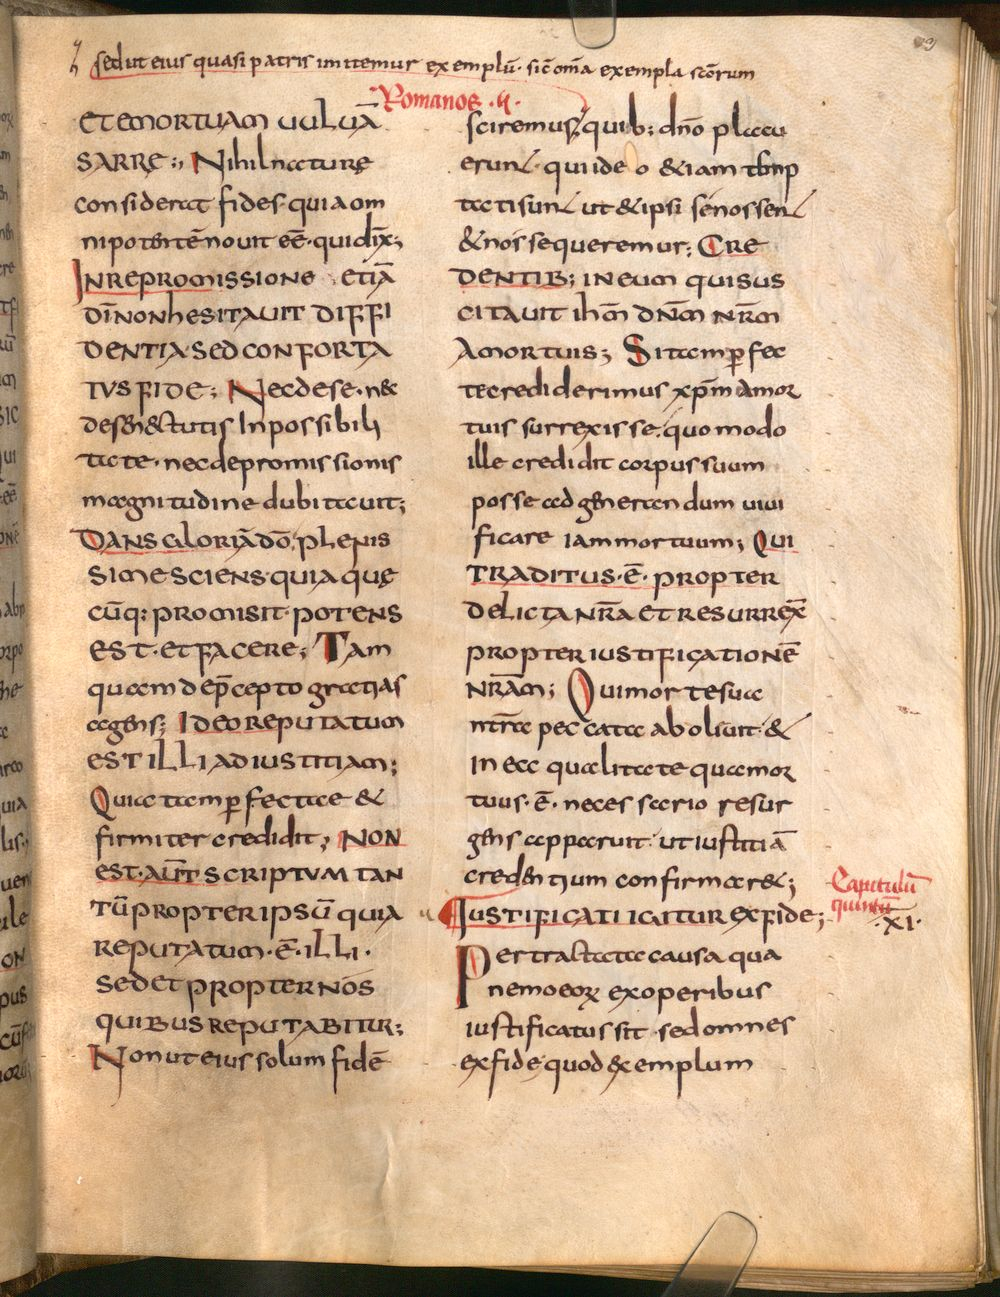 sed ut eius quasi patris imitemur exemplū· sic̄ om̄a exempla sc̄orum
Romanos ·
29
et emortuam uuluā
sarrę;, Nihil naturę
considerat fides· quia om
nipotentē nouit eē· qui dix̄;
In repromissione etiā
dī non hesitauit diffi
dentia sed conforta
tus fide; Nec de se· nec
de senectutis Inpossibili
tate· nec de promissionis
magnitudine dubitauit;
Dans gloriā dō, plenis
sime sciens· quia quę
cūq: promisit· potens
est· et facere; Tam
quam de p̄cepto gratias
agens; Ideo reputatum
est illi ad iustitiam;
Quia tam perfectae &
firmiter credidit; Non
est· aut̄ scriptum tan
tū propter ipsū quia
reputatum· ē· illi·
sed et propter nos
quibus reputabitur;
Non ut eius solum fidē
sciremus, quib; dn̄o placu
erunt· qui ideo &iam tēmp
tati sunt ut & ipsi se nossent
& nos sequeremur; Cre
dentib; in eum qui sus
citauit ihm̄ dnm̄ nr̄m
a mortuis; Si tam perfec
te crediderimus xpm̄ a mor
tuis surrexisse· quomodo
ille credidit corpus suum
posse ad generandum uiui
ficare iam mortuum; Qui
traditus· ē· propter
delicta nr̄a et resurrex̄
propter iustificationē
nrām; Qui morte sua
nr̄a peccata aboliuit· &
in ea qualitate qua mor
tuus· ē· necessario resur
gens apparuit· ut iustitiā
credentium confirmar&;
Iustificati igitur ex fide;
Capitulū
quintū
·XI·
Pertractata causa qua
nemo eoꝝ ex operibus
iustificatus sit· sed omnes
ex fide· quod exemplum